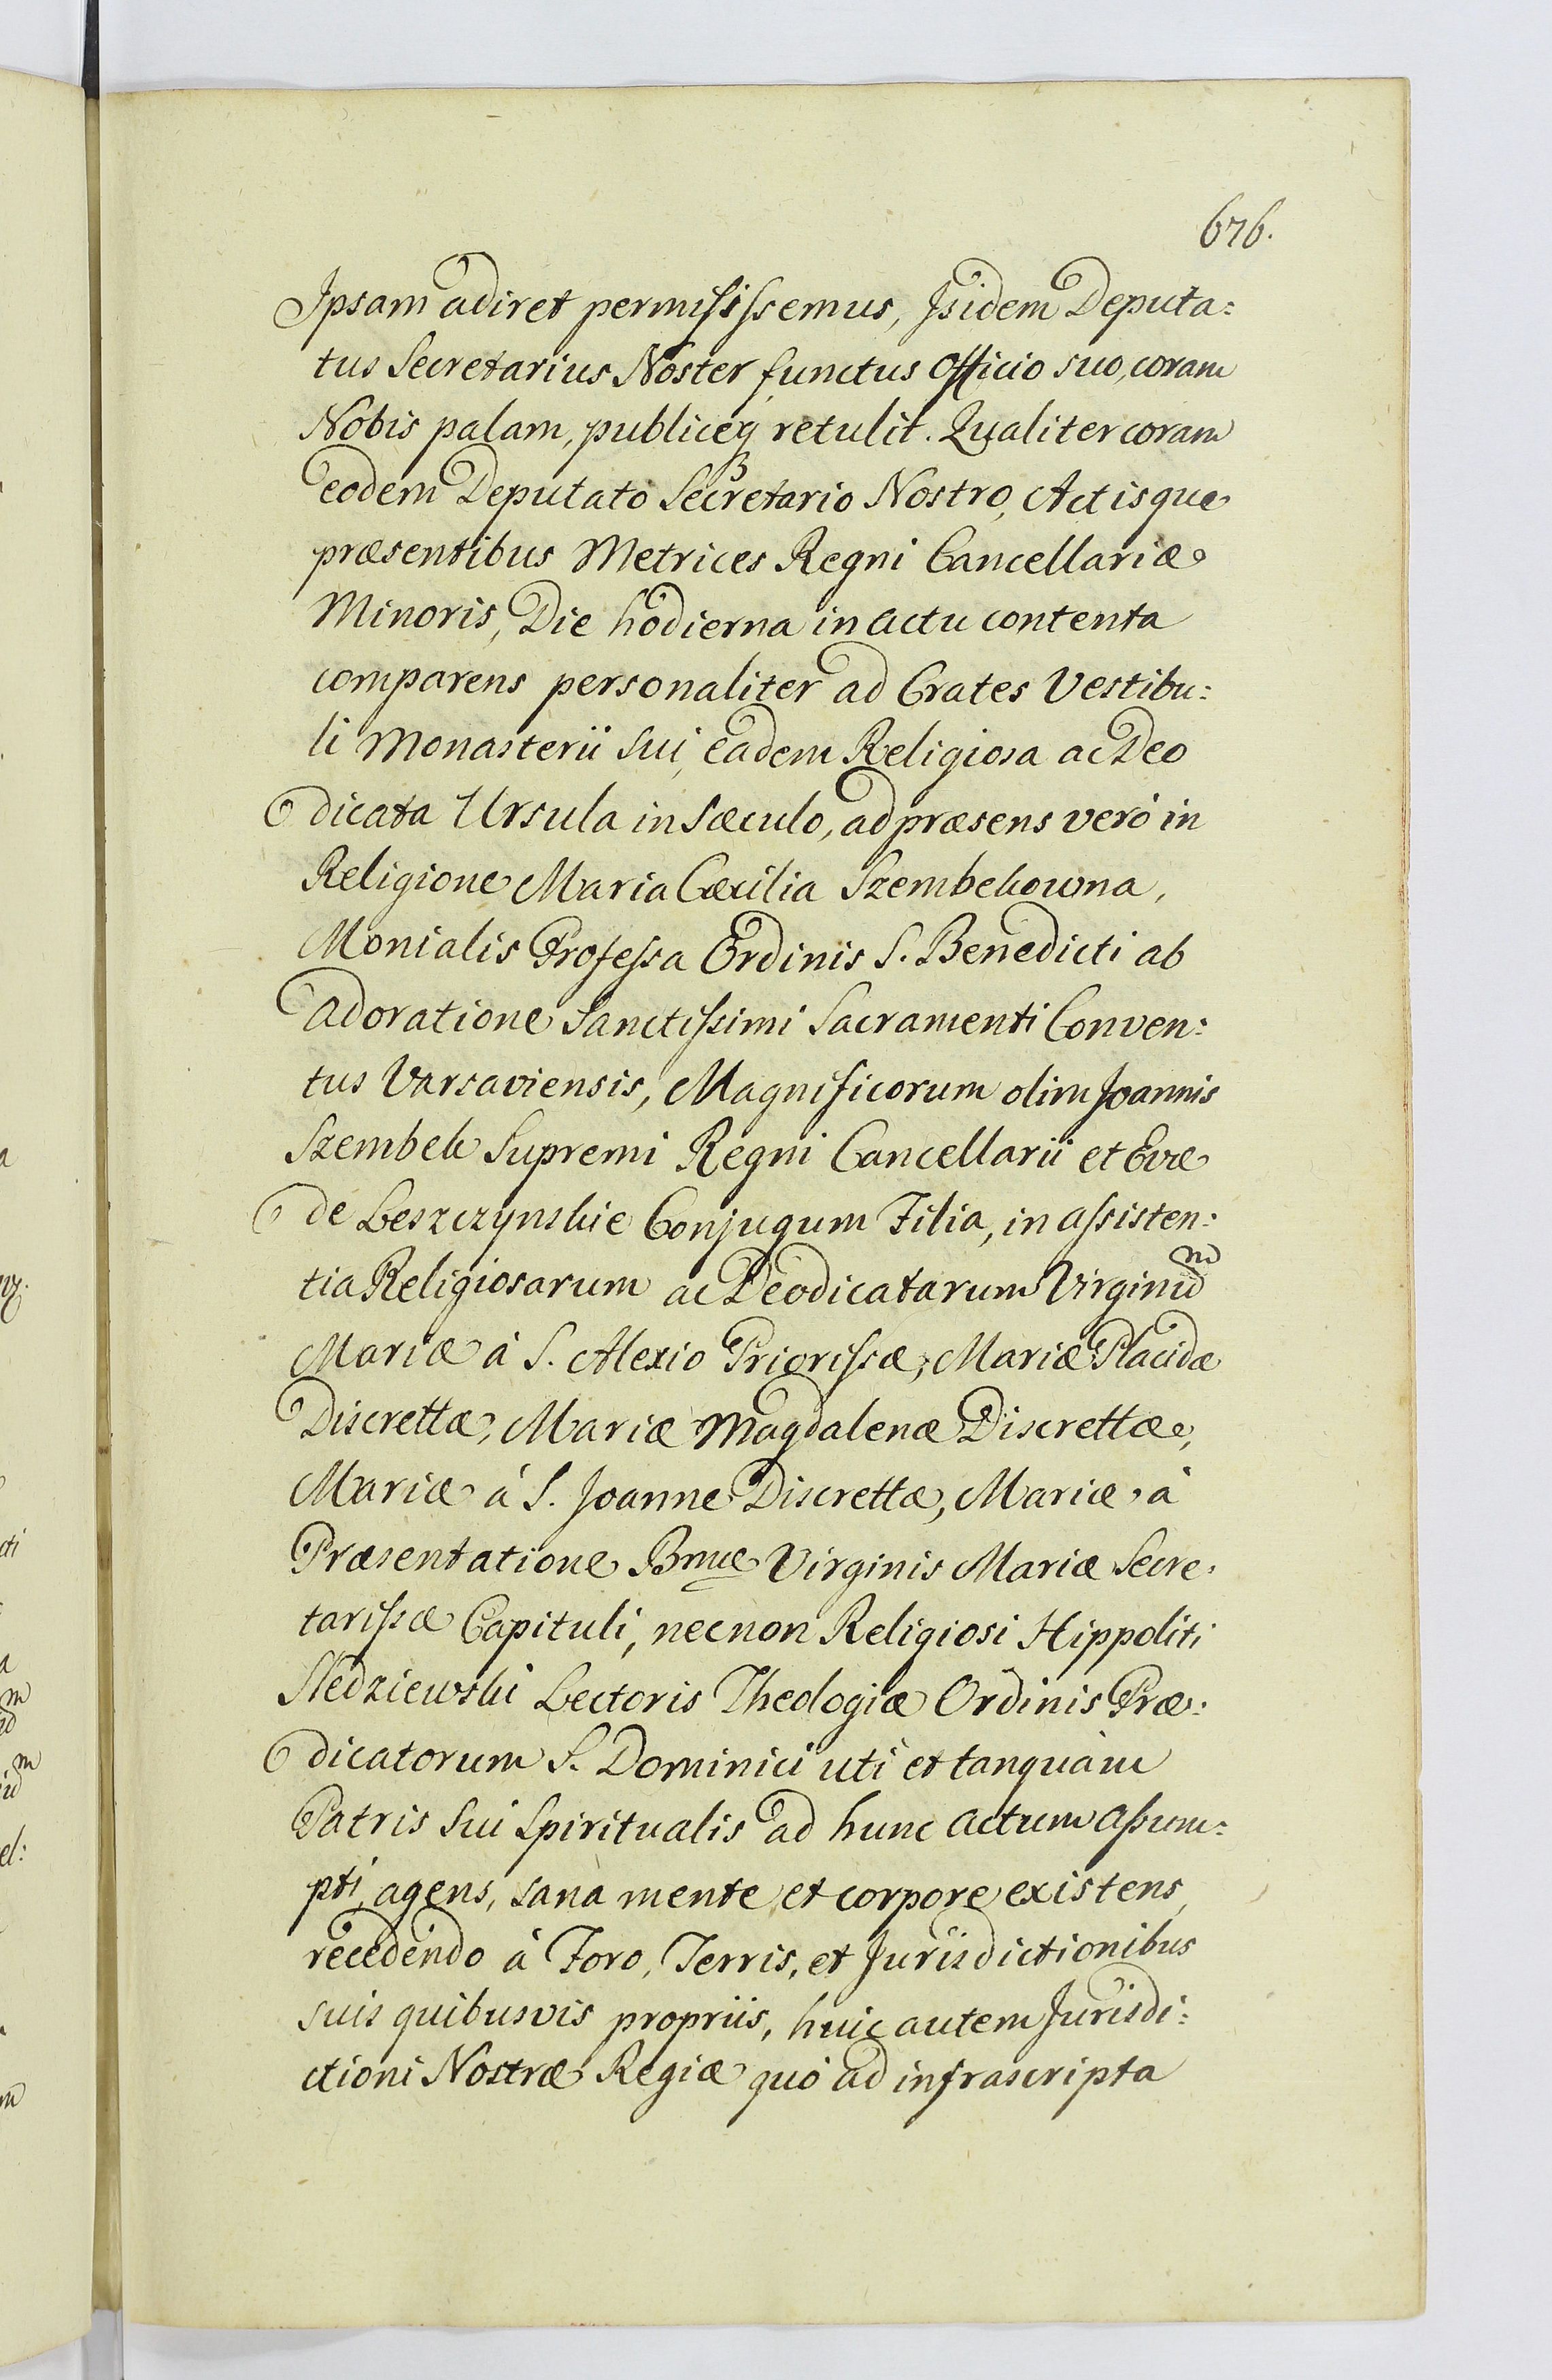 676.
Ipsam adiret permisissemus, Isidem Deputa:
tus Secretarius Noster functus Officio suo, coram
Nobis palam, publiceq; retulit. Qualiter coram
eodem Deputato Secretario Nostro, Actisque
præsentibus Metrices Regni Cancellariæ
Minoris, Die hodierna in actu contenta
comparens personaliter ad Crates Vestibu:
li Monasterii sui, eadem Religiosa ac Deo
dicata Ursula in Sæculo, ad præsens verò in
Religione Maria Cæcilia Szembekowna,
Monialis Professa Ordinis S. Benedicti ab
adoratione Sanctissimi Sacramenti Conven:
tus Varsaviensis, Magnificorum olim Joannis
Szembek Supremi Regni Cancellarii et Evæ
de Leszczynskie Conjugum Filia, in assisten:
tia Religiosarum ac Deodicatarum Virginū
Mariæ à S. Alexio Priorissæ, Mariæ Placidæ
Discrettæ, Mariæ Magdalenæ Discrettæ,
Mariæ à S. Joanne Discrettæ, Mariæ à
Præsentatione Bmæ Virginis Mariæ Secre:
tarissæ Capituli, necnon Religiosi Hippoliti
Sledziewski Lectoris Theologiæ Ordinis Præ:
dicatorum S. Dominici uti et tanquàm
Patris sui Spiritualis ad hunc actum assum:
pti, agens, sana mente et corpore existens,
recedendo à Foro, Terris, et Jurisdictionibus
suis quibusvis propriis, huic autem Jurisdi:
ctioni Nostræ Regiæ quò ad infrascripta